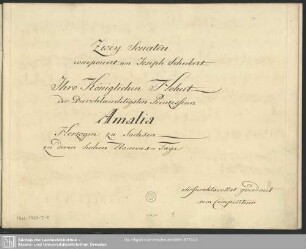 Zwey Sonaten
componirt von Joseph Schubert
Ihro Königlichen Hoheit
der Durchlauchtigsten Prinzessin
Amalia
Herzogin zu Sachsen
zu deren hohen Namens-Tage
unterthänigst gewidmet
vom Componisten
Sächsische Landesbibliothek -
Staats- und Universitätsbibliothek Dresden